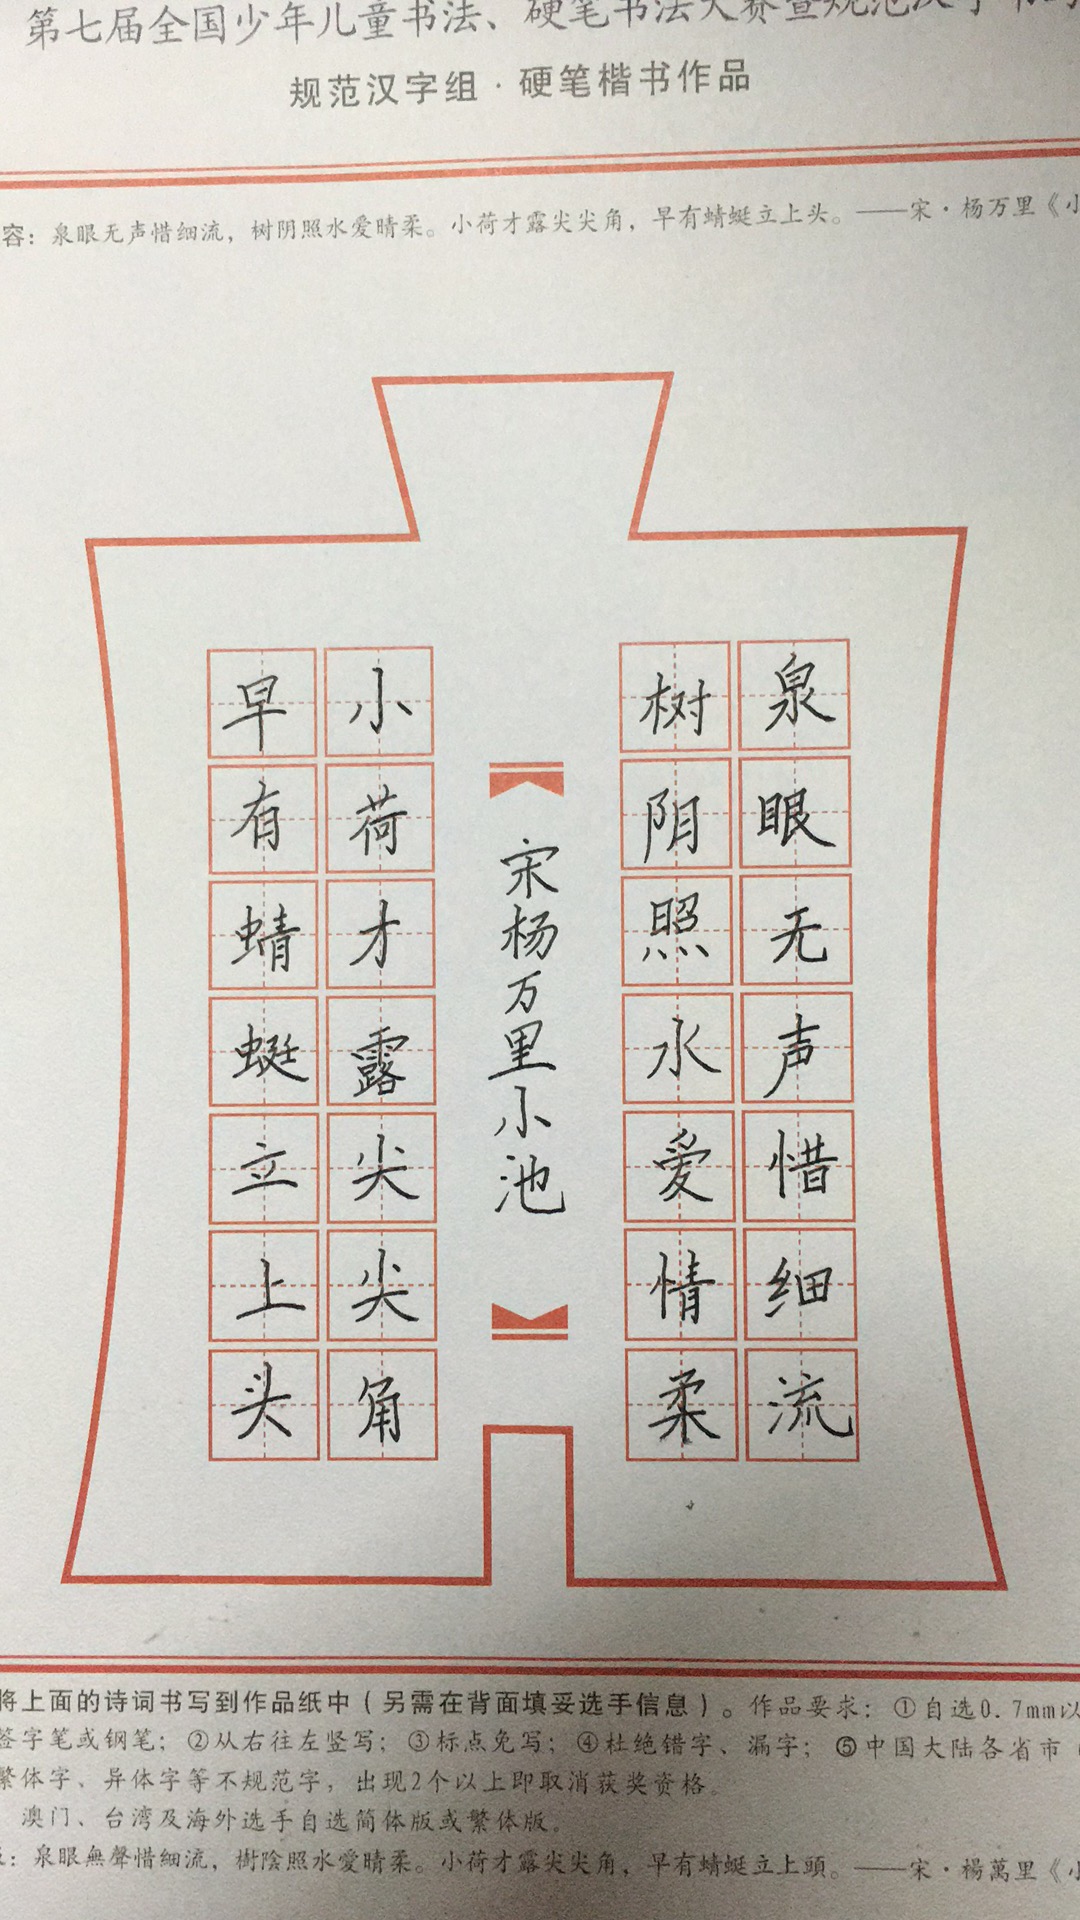 第七届全国少年儿童书法、硬笔书法大赛暨规范汉字书写
规范汉字组·硬笔楷书作品
容：泉眼无声惜细流，树阴照水爱晴柔。小荷才露尖尖角，早有蜻蜓立上头。——宋·杨万里《小
泉眼无声惜细流
树阴照水爱情柔
宋杨万里小池
小荷才露尖尖角
早有蜻蜓立上头
将上面的诗词书写到作品纸中（另需在背面填妥选手信息）。作品要求：①自选0.7mm以
签字笔或钢笔；②从右往左竖写；③标点免写；④杜绝错字、漏字；⑤中国大陆各省市（
繁体字、异体字等不规范字，出现2个以上即取消获奖资格。
澳门、台湾及海外选手自选简体版或繁体版。
：泉眼無聲惜細流，樹陰照水愛晴柔。小荷才露尖尖角，早有蜻蜓立上頭。——宋·楊萬里《小